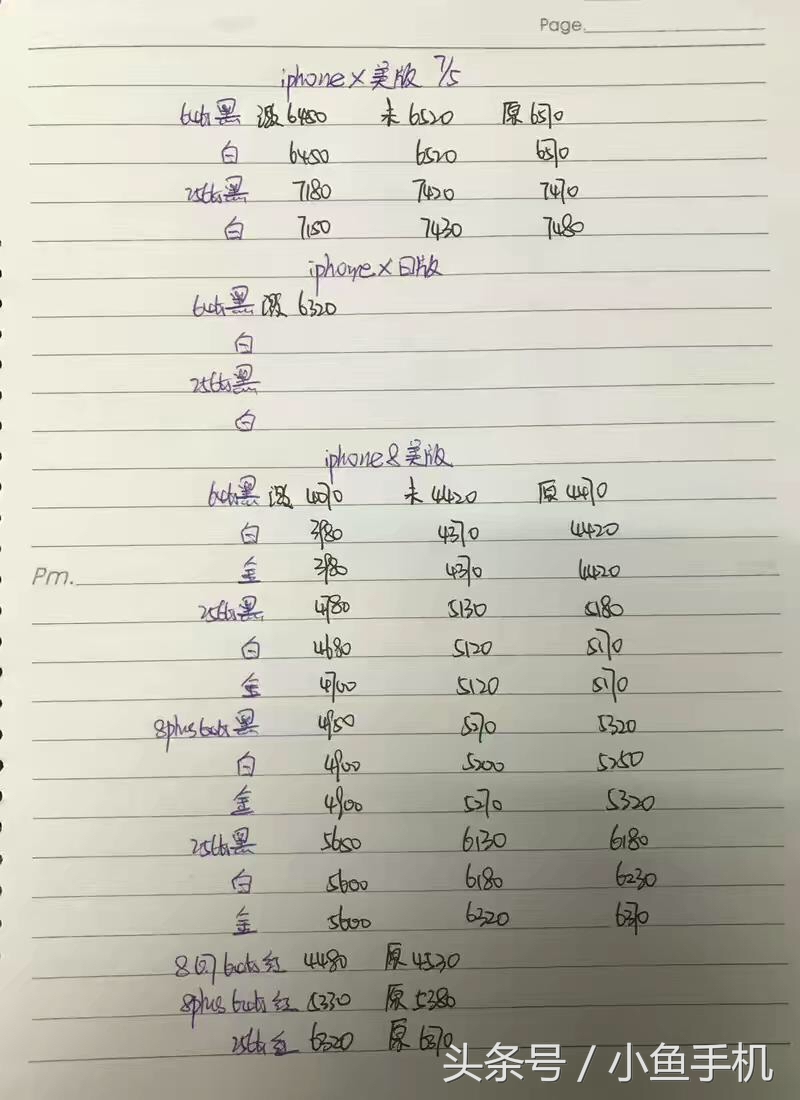 Page.
iphone X 美版 7/5
64G黑 激6450 未6520 原6570
白 6450 6520 6570
256G黑 7180 7420 7470
白 7150 7430 7480
iphone X 日版
64G黑 激 6320
白
256G黑
白
iphone 8 美版
64G黑 激 4070 未4420 原4470
白 3980 4370 4420
Pm. 金 3980 4370 4420
256G黑 4780 5130 5180
白 4680 5120 5170
金 4700 5120 5170
8plus 64G黑 4950 5270 5320
白 4900 5200 5250
金 4900 5270 5320
256G黑 5650 6130 6180
白 5600 6180 6230
金 5600 6320 6370
64G红 4480 原4530
8plus 64G红 5330 原5380
256G红 6320 原6370
头条号 / 小鱼手机